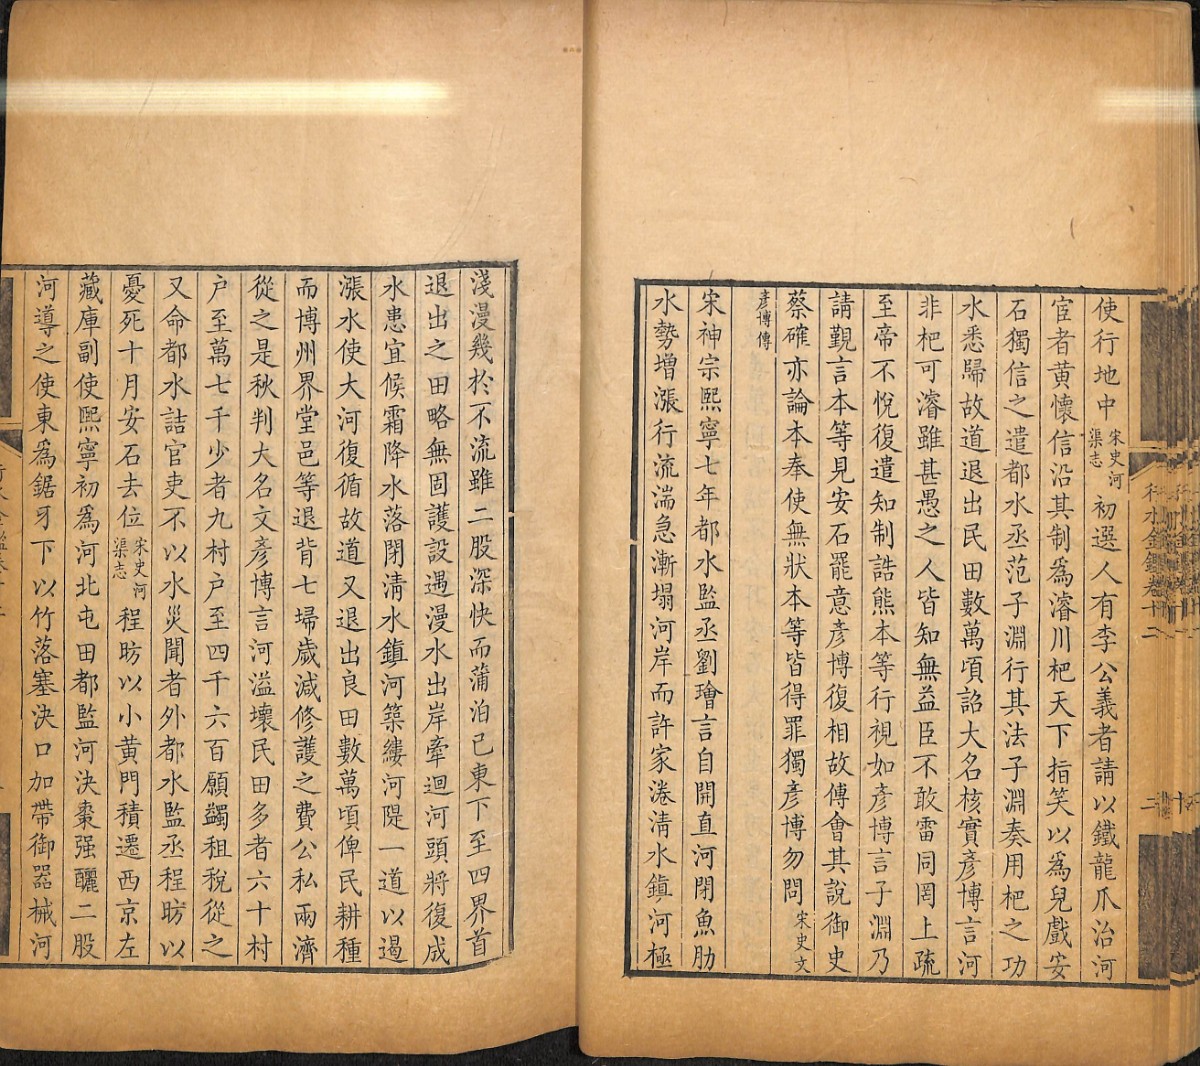 使行地中宋史河渠志初選人有李公義者請以鐵龍爪治河
宦者黃懷信沿其制爲濬川杷天下指笑以爲兒戲安
石獨信之遣都水丞范子淵行其法子淵奏用杷之功
水悉歸故道退出民田數萬頃詔大名核實彥博言河
非杷可濬雖甚愚之人皆知無益臣不敢雷同罔上疏
至帝不悅復遣知制誥熊本等行視如彥博言子淵乃
請覲言本等見安石罷意彥博復相故傅會其說御史
蔡確亦論本奉使無狀本等皆得罪獨彥博勿問宋史文
彥博傳
宋神宗熙寧七年都水監丞劉璯言自開直河閉魚肋
水勢增漲行流湍急漸塌河岸而許家港淸水鎭河極
淺漫幾於不流雖二股深快而蒲泊已東下至四界首
退出之田略無固護設遇漫水出岸牽迴河頭將復成
水患宜候霜降水落閉淸水鎭河築縷河隄一道以遏
漲水使大河復循故道又退出良田數萬頃俾民耕種
而博州界堂邑等退背七埽歲減修護之費公私兩濟
從之是秋判大名文彥博言河溢壞民田多者六十村
户至萬七千少者九村户至四千六百願蠲租稅從之
又命都水詰官吏不以水災聞者外都水監丞程昉以
憂死十月安石去位宋史河渠志程昉以小黃門積遷西京左
藏庫副使熙寧初爲河北屯田都監河決棗强釃二股
河導之使東爲鋸牙下以竹落塞決口加帶御器械河
行水金鑑卷十二
二